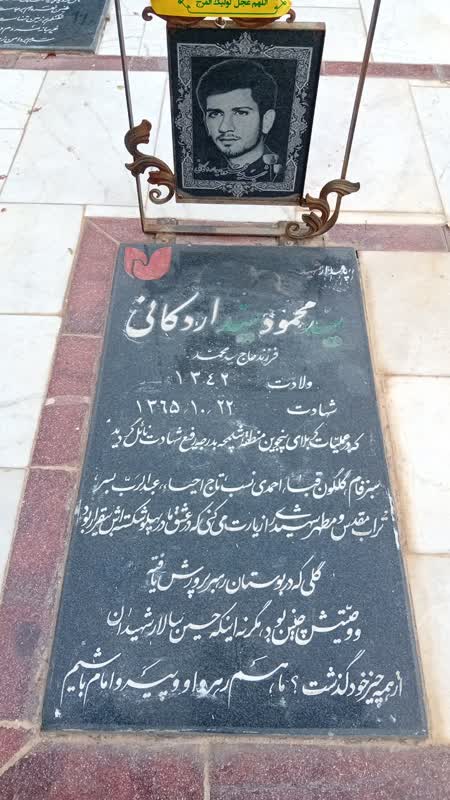 اللهم عجل لولیک الفرج
پاسدار شهید
سید محمود سید اردکانی
فرزند حاج سید محمد
ولادت ۱۳۴۲
شهادت ۱۳۶۵،۱۰،۲۲
که در عملیات کربلای پنج در این منطقه شلمچه بدرجه رفیع شهادت نائل گردید
سبز فام گلگون قبا، احمدی نسب تاج احیاء، عبدالرب بسر،
تراب مقدس و مطهر شهیدی را زیارت می کنی که در عشق تا در پهلو شکسته اش بیقرار بود
گلی که در بوستان رهبر پرورش یافته
و وصیتش چنین بود، مگر نه اینکه حسین سالار شهیدان
از همه چیز خود گذشت؟ ما هم رهرو او و پیرو امام باشیم